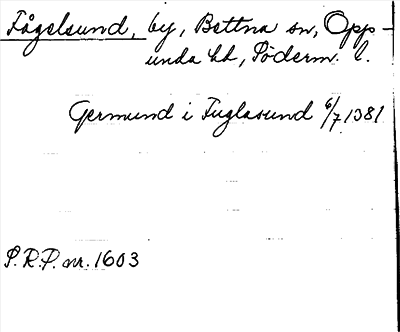 Fågelsund, by, Bettna sn, Opp-
unda hd, Söderm. l.
Germund i Fuglasund 6/7 1381
S.R.P. nr. 1603